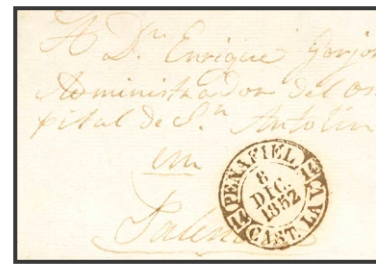 A Dn. Enrique Gorjon
Administrador del os
pital de Sn. Antolin
en
Palencia
PEÑAFIEL
6
DIC.
1852
CAST. LA VA